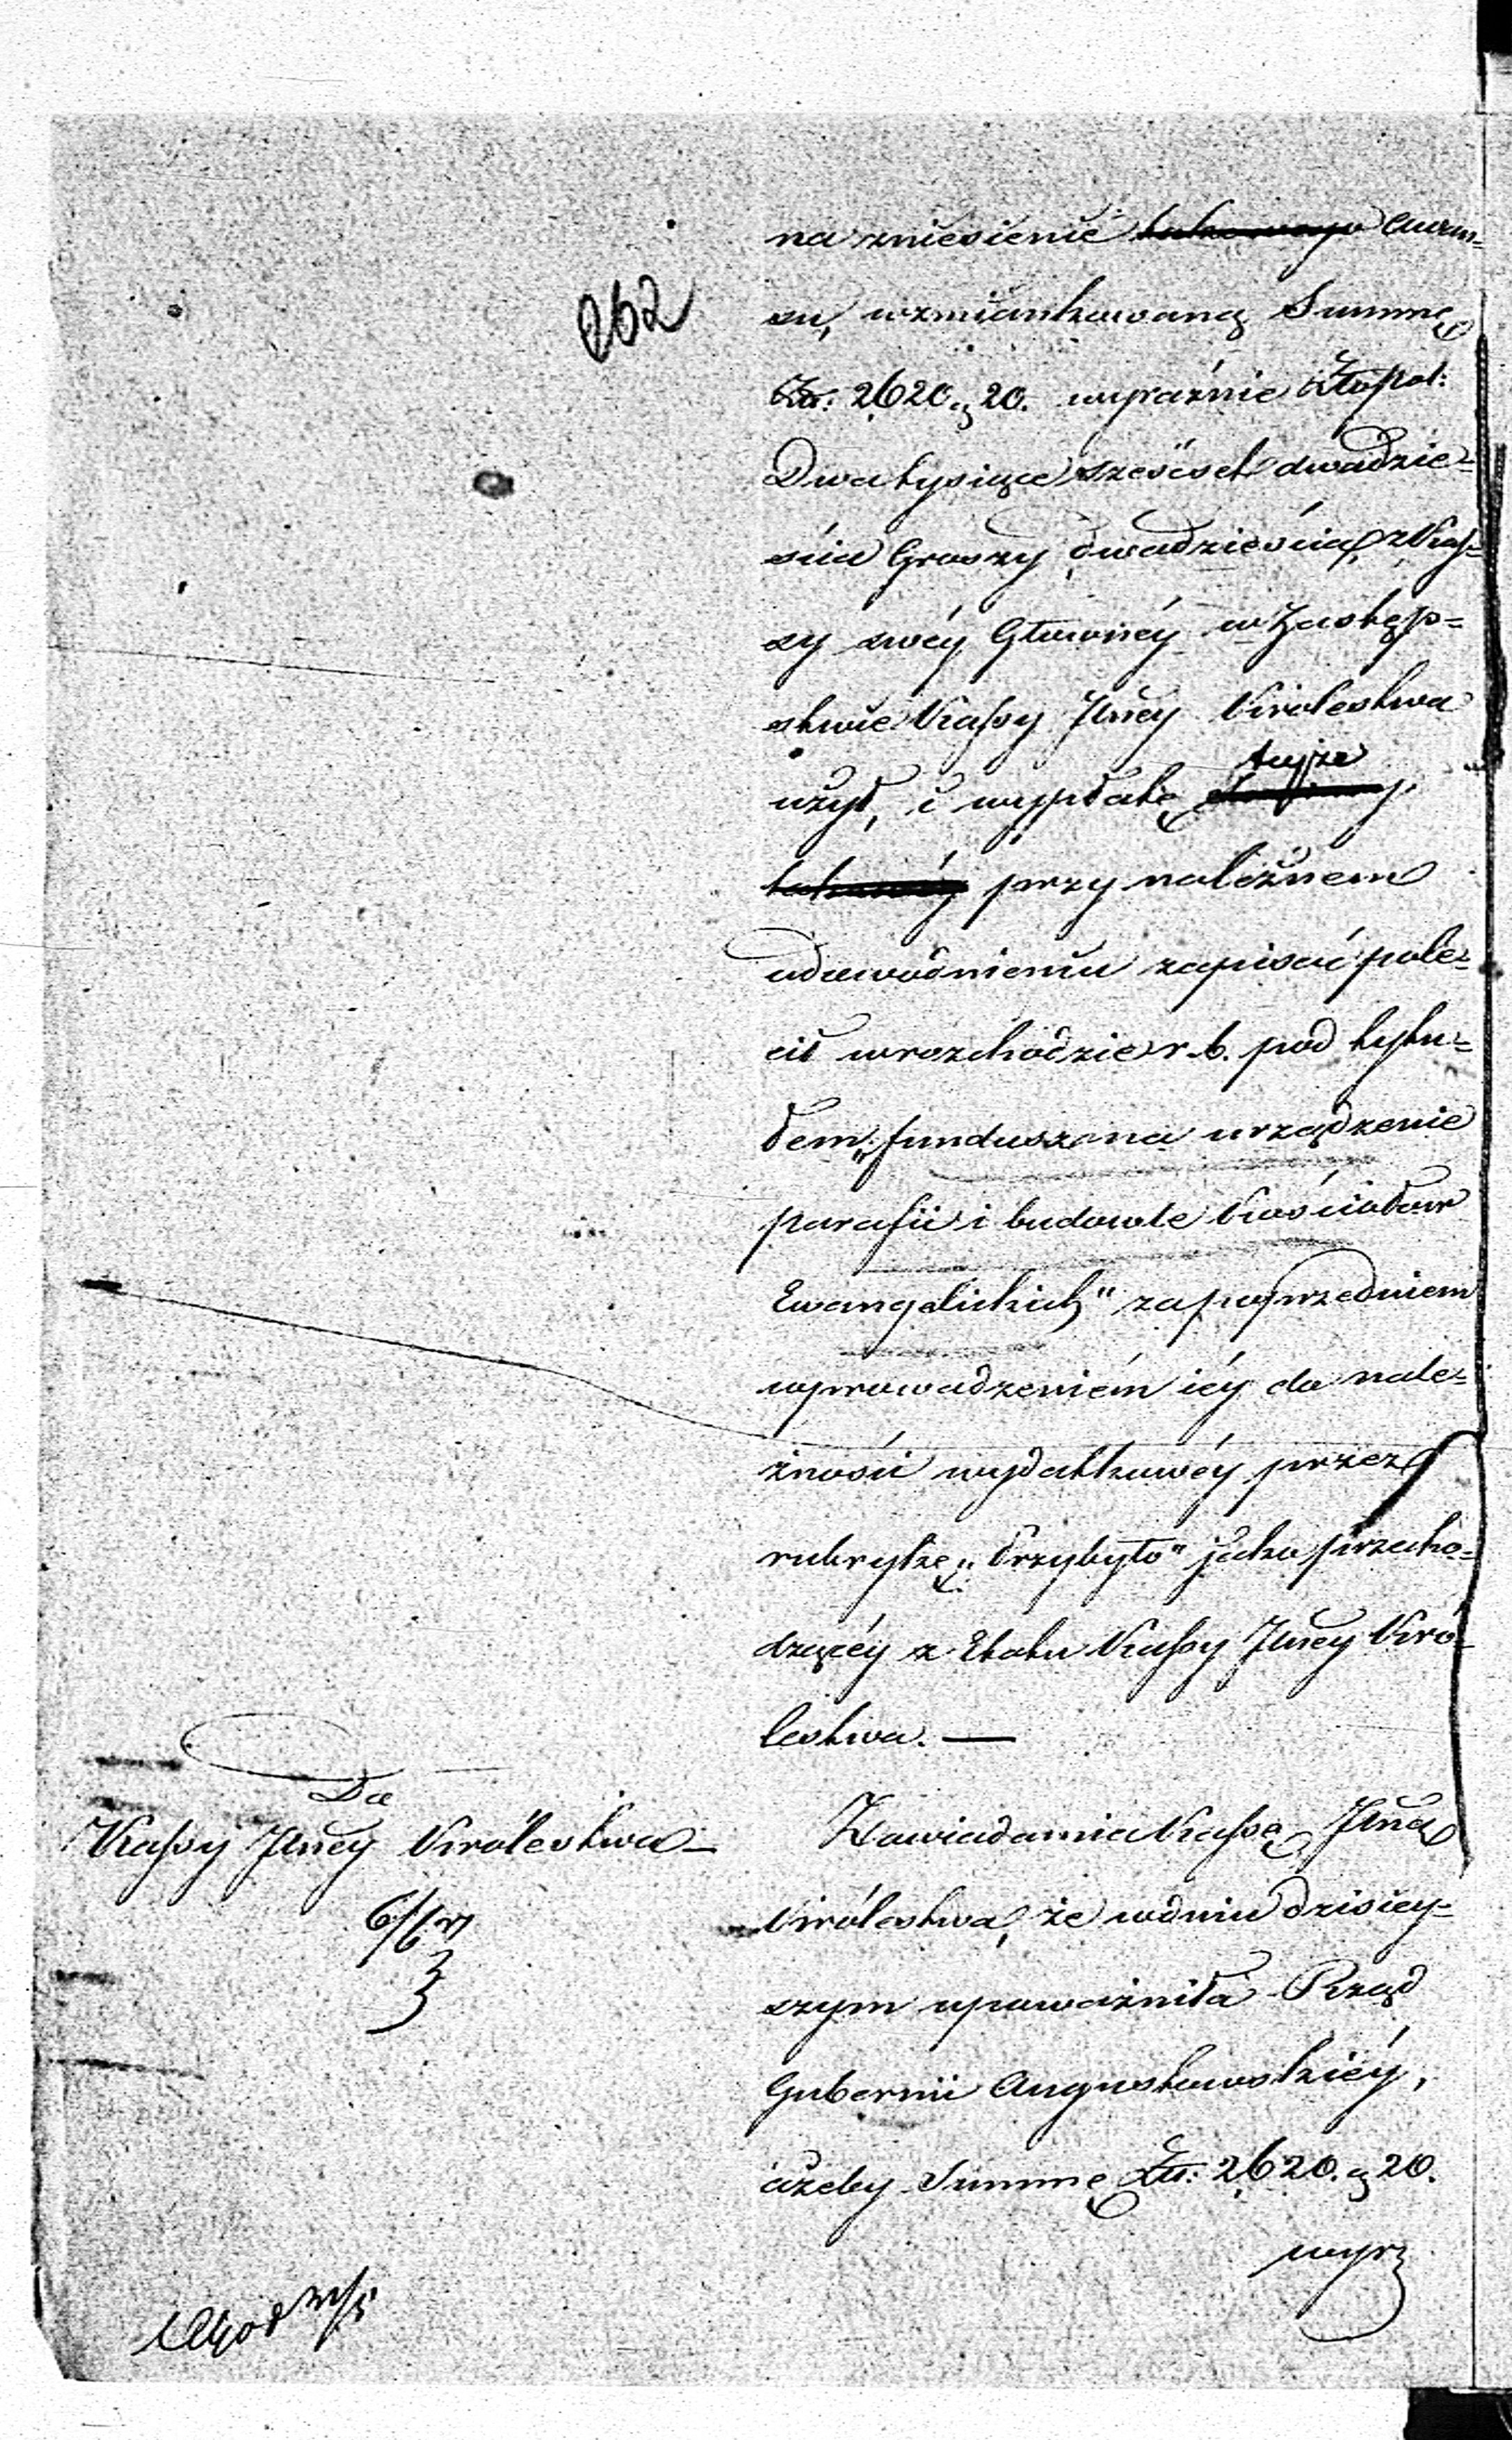 262
na zniesienie awan=
su, wzmiankowaną Summę
Złr: 2620 g 20. wyraźnie Złopol:
Dwa tysiące sześćset dwadzie=
ścia Groszy dwadzieścia, z Kas=
sy swéy Główney w Zastęp=
stwie Kassy Jlney Króleskwa
użył, i wypłatę tejże
przy należnem
udowodnieniu zapisać pole=
cił w rozchodzie r. b. pod tytu=
łem: "fundusz na urządzenie
parafii i budowle Kościołow
Ewangelickich" za poprzedniem
wprowadzeniém iéy do nale=
żności wydatkowéy przez
rubrykę "Przybyło" jako przecho=
dzącéy z Etatu Kassy Jlney Kró=
lestwa. —
Do
Kassy Jlney Królestwa —
Zawiadamia Kassę Jlną
Królestwa, że w dniu dzisiey=
szym upoważniła Rząd
Gubernii Augustowskiéy,
ażeby Summę Złr: 2620. g 20.
wyr